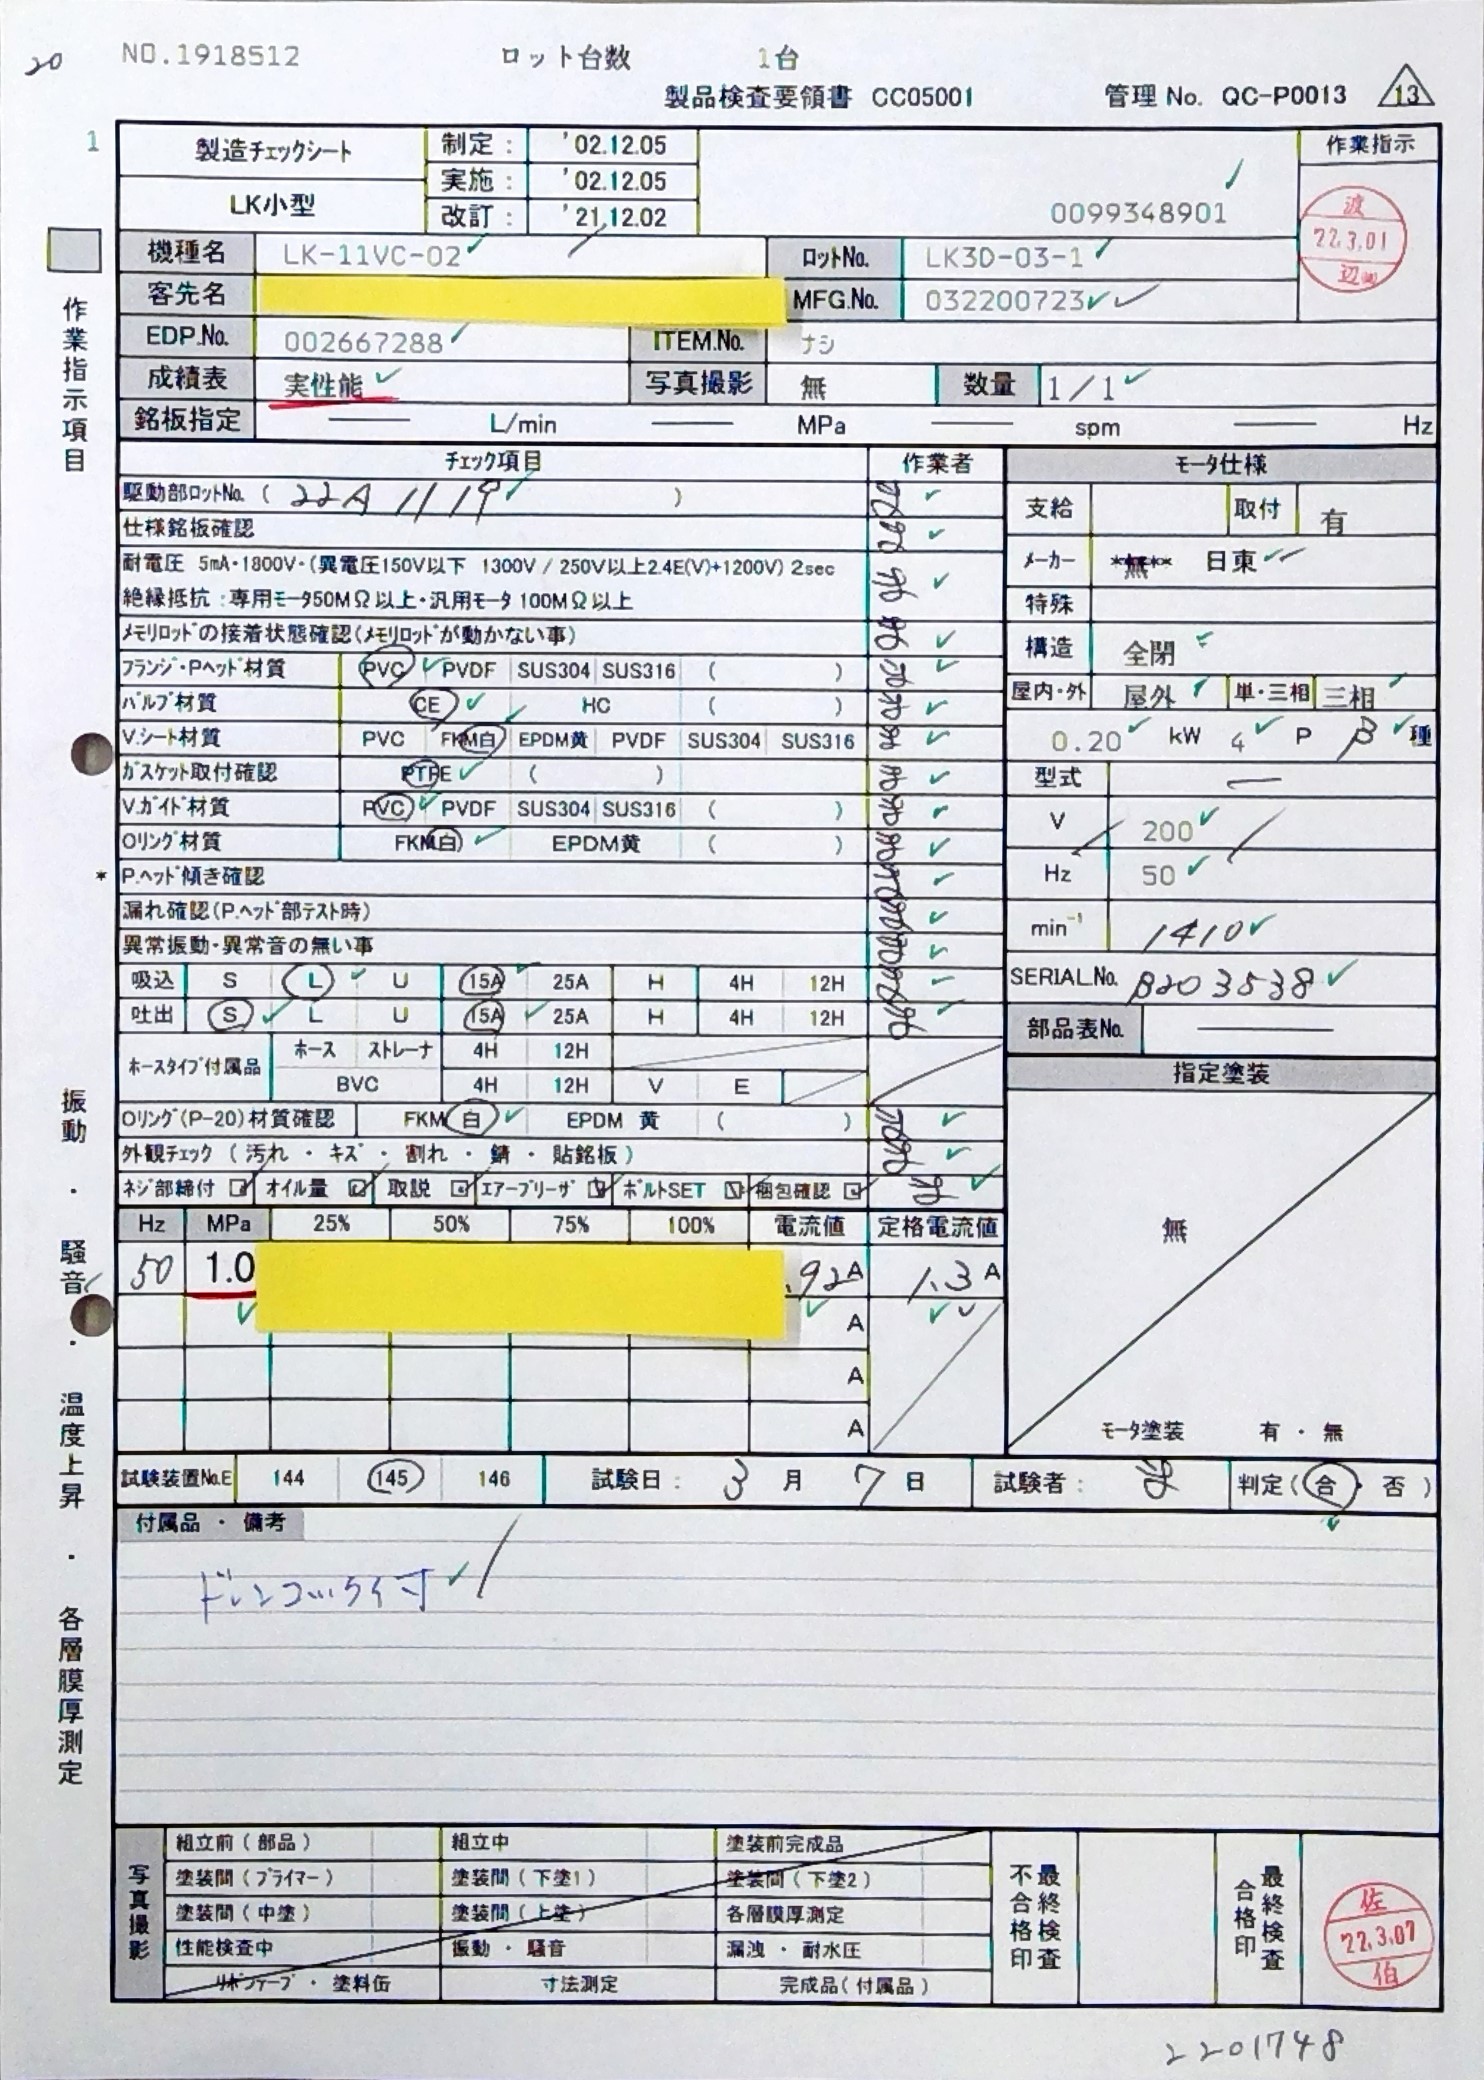 20 NO.1918512 ロット台数 1台
製品検査要領書 CC05001 管理 No. QC-P0013 13
1
製造チェックシート 制定: '02.12.05 作業指示
LK小型 実施: '02.12.05
改訂: '21.12.02 0099348901
渡 22.3.01 辺
機種名 LK-11VC-02 ロットNo. LK3D-03-1
客先名 MFG.No. 032200723
EDP.No. 002667288 ITEM.No. ナシ
成績表 実性能 写真撮影 無 数量 1/1
銘板指定 L/min MPa spm Hz
作業指示項目
チェック項目 作業者
駆動部ロットNo. ( 22A1119 )
仕様銘板確認
耐電圧 5mA・1800V・(異電圧150V以下 1300V / 250V以上2.4E(V)+1200V) 2sec
絶縁抵抗:専用モータ50MΩ以上・汎用モータ 100MΩ以上
メモリロッドの接着状態確認(メモリロッドが動かない事)
フランジ・Pヘッド材質 PVC PVDF SUS304 SUS316 ( )
バルブ材質 CE HC ( )
V.シート材質 PVC FKM白 EPDM黄 PVDF SUS304 SUS316
ガスケット取付確認 PTFE ( )
V.ガイド材質 PVC PVDF SUS304 SUS316 ( )
Oリング材質 FKM白 EPDM黄 ( )
* P.ヘッド傾き確認
漏れ確認(P.ヘッド部テスト時)
異常振動・異常音の無い事
吸込 S L U 15A 25A H 4H 12H
吐出 S L U 15A 25A H 4H 12H
ホースタイプ付属品 ホース ストレーナ 4H 12H
BVC 4H 12H V E
Oリング(P-20)材質確認 FKM 白 EPDM 黄 ( )
外観チェック ( 汚れ ・ キズ ・ 割れ ・ 錆 ・ 貼銘板 )
ネジ部締付 オイル量 取説 エアーブリーザ ボルトSET 梱包確認
モータ仕様
支給 取付 有
メーカー **無** 日東
特殊
構造 全閉
屋内・外 屋外 単・三相 三相
0.20 kW 4 P β 種
型式
V 200
Hz 50
min⁻¹ 1410
SERIAL.No. B203538
部品表No.
指定塗装
無
モータ塗装 有 ・ 無
Hz MPa 25% 50% 75% 100% 電流値 定格電流値
50 1.0 .92A 1.3 A
A
A
A
試験装置No.E 144 145 146 試験日: 3 月 7 日 試験者: 判定 ( 合 ・ 否 )
付属品 ・ 備考
ドレンコック付
振動 ・ 騒音 ・ 温度上昇 ・ 各層膜厚測定
写真撮影
組立前 ( 部品 ) 組立中 塗装前完成品
塗装間 ( プライマー ) 塗装間 ( 下塗1 ) 塗装間 ( 下塗2 )
塗装間 ( 中塗 ) 塗装間 ( 上塗 ) 各層膜厚測定
性能検査中 振動 ・ 騒音 漏洩 ・ 耐水圧
リボンテープ ・ 塗料缶 寸法測定 完成品( 付属品 )
最終検査不合格印
最終検査合格印
佐 22.3.07 伯
2201748